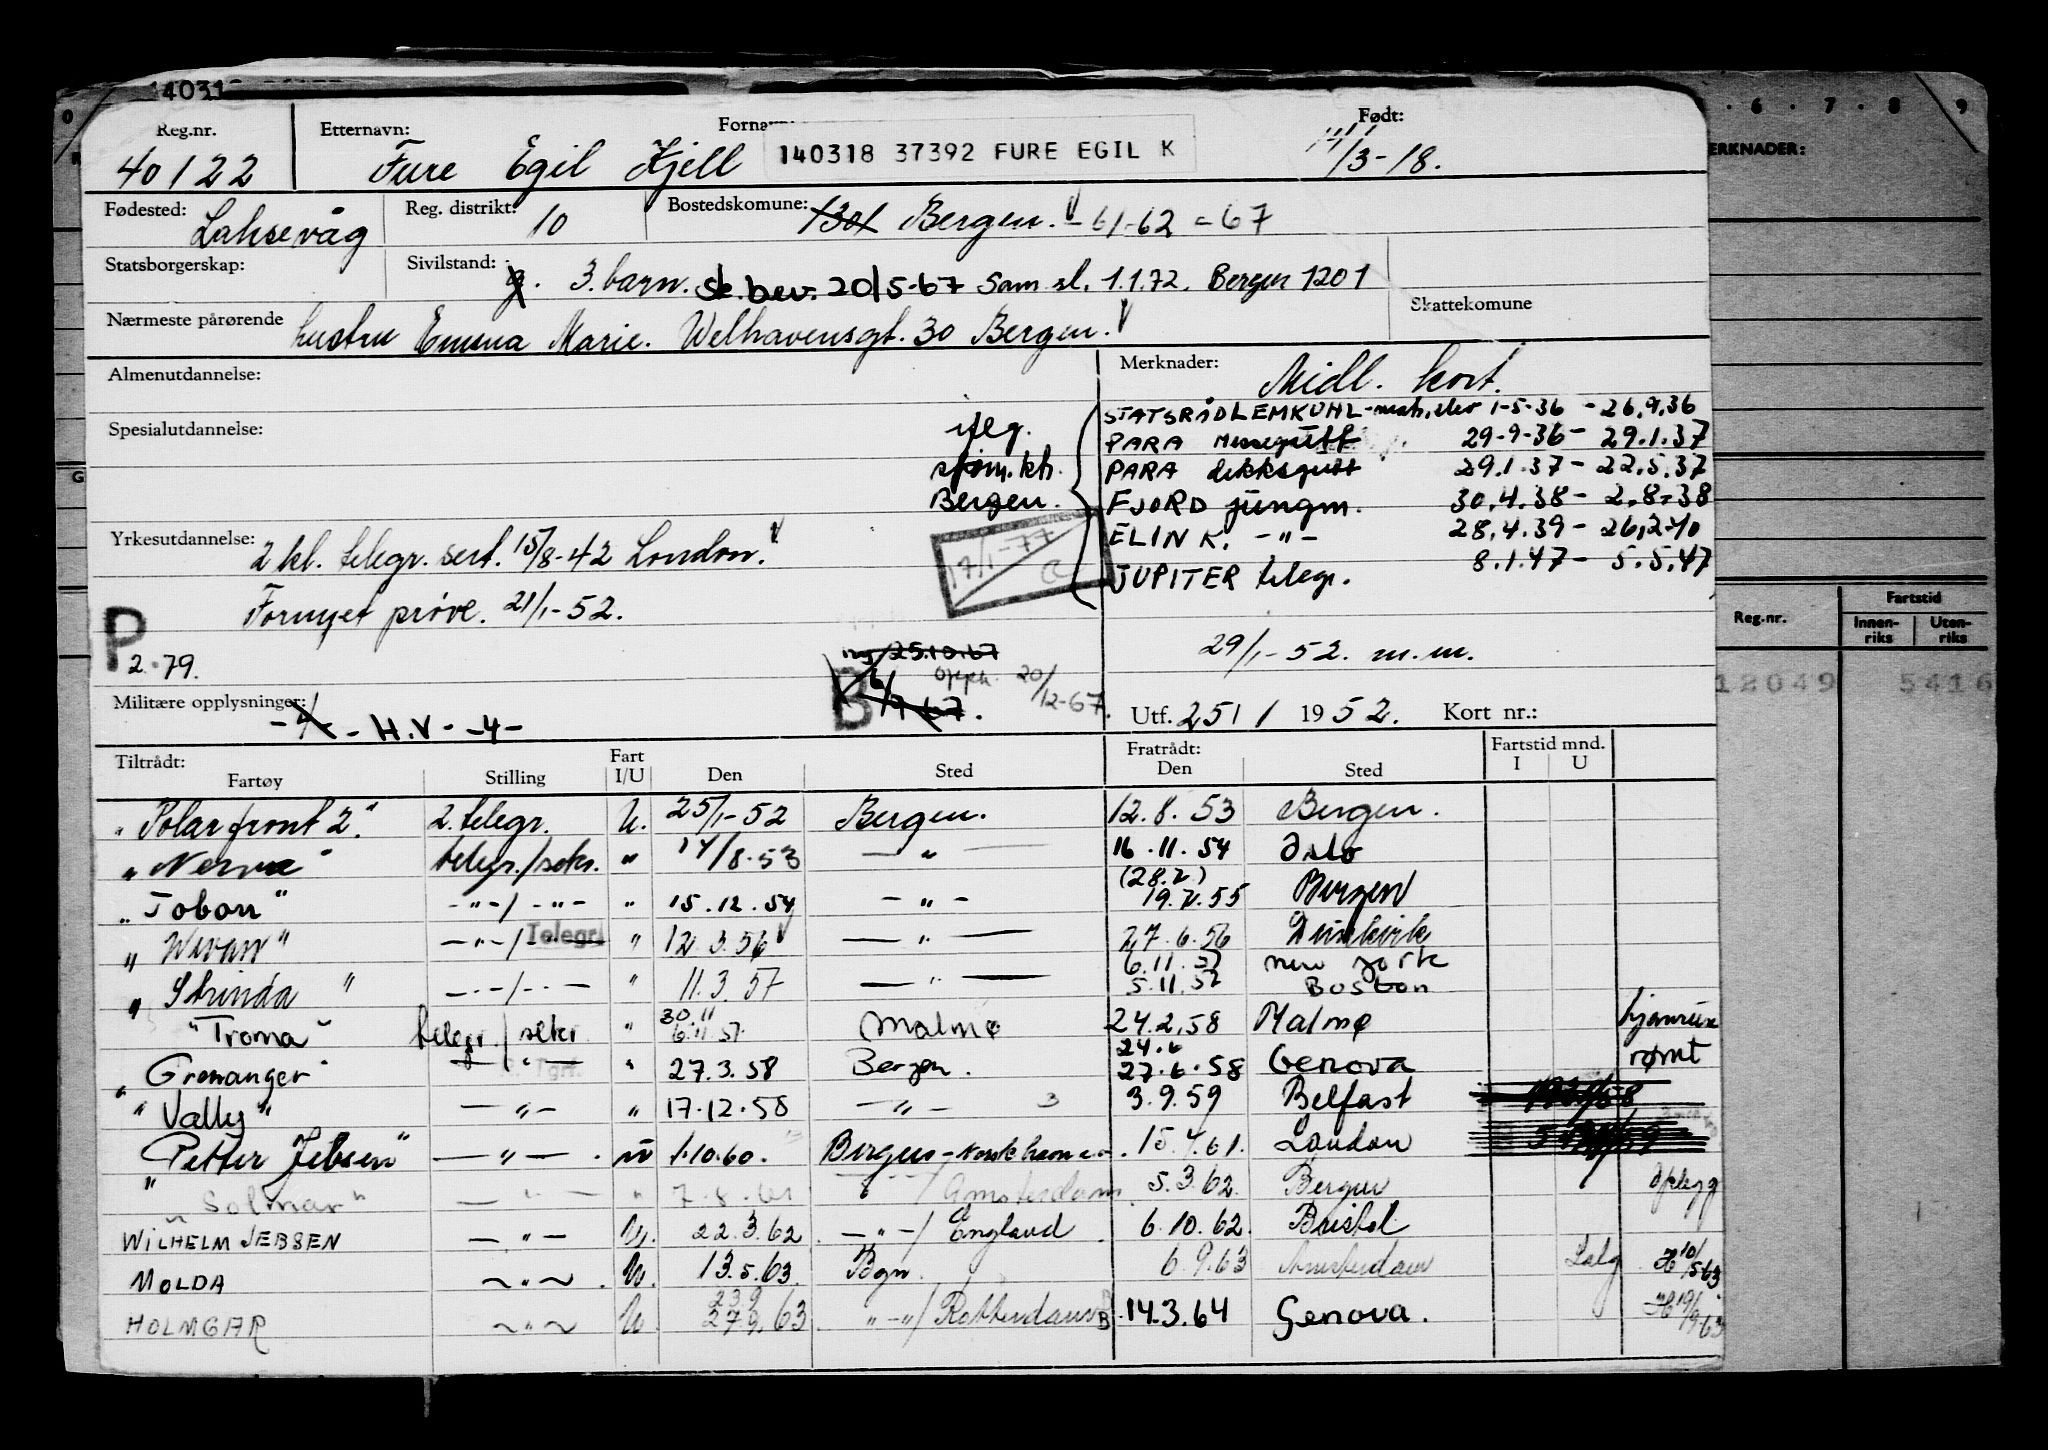 14031
Reg.nr. Etternavn: Fornavn: Født:
40122 Fure Egil Kjell 140318 37392 FURE EGIL K 14/3-18.
Fødested: Laksevåg Reg. distrikt: 10 Bostedskomune: 1301 Bergen. -61-62-67
Statsborgerskap: Sivilstand: g. 3. barn. se. bev. 20/5-67 Sam. sl. 1.1.72. Bergen 1201
Skattekomune
Nærmeste pårørende hustru Emma Marie. Welhavensgt. 30 Bergen.
Almenutdannelse: Merknader: Midl. kort.
STATSRÅD LEMKUHL - mask, elev 1-5-36 - 26.9.36
Spesialutdannelse: iflg. PARA Messegutt 29-9-36 - 29.1.37
sjøm.kt. PARA dekksgutt 29.1.37 - 22.5.37
Bergen. FJORD jungm. 30.4.38 - 2.8.38
Yrkesutdannelse: 2 kl. telegr. sert. 15/8-42 London. ELIN K. -"- 28.4.39 - 26.2.40
17/1-77
JUPITER telegr. 8.1.47 - 5.5.47
Fornyet prøve. 21/1-52.
P 2.79.
29/1-52. m.m.
25.10.67
B opph. 20/12-67.
Militære opplysninger: -4- H.V - -4-
Utf. 25/1 1952. Kort nr.:
Tiltrådt: Fratrådt: Fartstid mnd.
Fartøy Stilling Fart I/U Den Sted Den Sted I U
"Polarfront 2." 2. telegr. U. 25/1-52 Bergen. 12.8.53 Bergen.
"Nerva" telegr./sekr. " 17/8.53 — " — 16.11.54 Oslo
"Tobon" -"-/-"- " 15.12.54 - " - (28.2) 19.2.55 Bergen
"Wivan" -"-/ Telegr. " 12.3.56 — " — 27.6.56 Dunkirk
6.11.57 New York
"Strinda" -"-/-"- " 11.3.57 — " — 5.11.57 Boston
"Troma" telegr./sekr " 30.11 6.11.57 Malmø 24.2.58 Malmø hjemreise
"Gronanger" — " — Tgrf. " 27.3.58 Bergen. 24.6 27.6.58 Genova rømt
"Vally" — " — " 17.12.58 — " — 3 3.9.59 Belfast
"Petter Jebsen" — " — 1.10.60. Bergen - 15.4.61. London
"Solmar" — " — " 7.8.61 " / Amsterdam 5.3.62. Bergen Opplegg
WILHELM JEBSEN — " — U. 22.3.62 — " — / England 6.10.62. Bristol
MOLDA ~ " ~ U. 13.5.63. Bgn. 6.9.63 Amsterdam Salg H 10/5 63
HOLMGAR ~ " ~ U 23.9 27.9.63 " - " / Rotterdam B 14.3.64 Genova. H 19/9 63
6 · 7 · 8 · 9
ERKNADER:
Reg.nr. Fartstid
Innenriks Utenriks
12049 5416